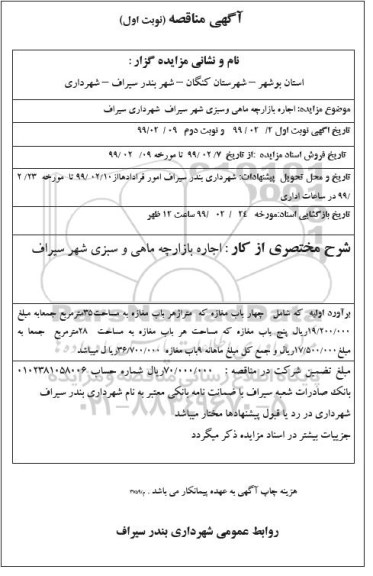 آگهی مناقصه (نوبت اول)
نام و نشانی مزایده گزار :
استان بوشهر – شهرستان کنگان – شهر بندر سیراف – شهرداری
موضوع مزایده: اجاره بازارچه ماهی وسبزی شهر سیراف شهرداری سیراف
تاریخ آگهی نوبت اول ۲/ ۰۲ / ۹۹ و نوبت دوم ۰۹ / ۹۹/۰۲
تاریخ فروش اسناد مزایده :از تاریخ ۹۹/۰۲/۷ تا مورخه ۰۹/ ۰۲/ ۹۹
تاریخ و محل تحویل پیشنهادات: شهرداری بندر سیراف امور قراداداهااز۹۹/۰۲/۱۰ تا مورخه ۲/۲۳
/۹۹ در ساعات اداری
تاریخ بازگشایی اسناد:مورخه ۲۴ / ۰۲/ ۹۹ ساعت ۱۲ ظهر
شرح مختصری از کار : اجاره بازارچه ماهی و سبزی شهر سیراف
برآورد اولیه که شامل چهار باب مغازه که متراژهر باب مغازه به مساحت۳۵مترمربع جمعابه مبلغ
۱۹/۲۰۰/۰۰۰ریال پنج باب مغازه که مساحت هر باب مغازه به مساحت ۲۸مترمربع جمعا به
مبلغ۱۷/۵۰۰/۰۰۰ریال و جمع کل مبلغ ماهانه ۹باب مغازه ۳۶/۷۰۰/۰۰۰ ریال میباشد
مبلغ تضمین شرکت در مناقصه : ۷۰/۰۰۰/۰۰۰ریال شماره حساب ۰۱۰۲۳۸۱۰۵۸۰۰۶
بانک صادرات شعبه سیراف یا ضمانت نامه بانکی معتبر به نام شهرداری بندر سیراف
شهرداری در رد یا قبول پیشنهادها مختار میباشد
جزییات بیشتر در اسناد مزایده ذکر میگردد
پایگاه اطلاع رسانی مناقصه و مزایده
۰۲۱-۸۸۳۴۹۶۷۰-۵
هزینه چاپ آگهی به عهده پیمانکار می باشد .
روابط عمومی شهرداری بندر سیراف